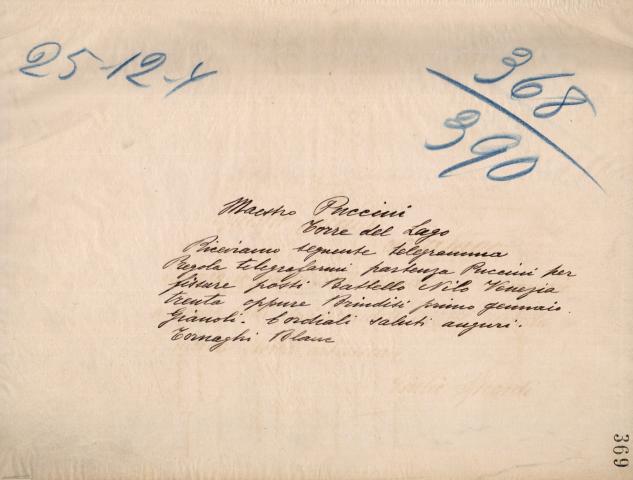 25-12-7
368
390
Maestro Puccini
Torre del Lago
Riceviamo seguente telegramma
Pregola telegrafarmi partenza Puccini per
fissare posti Battello Nilo Venezia
trenta oppure Brindisi primo gennaio.
Gianoli. Cordiali saluti auguri.
Tornaghi Blanc
369